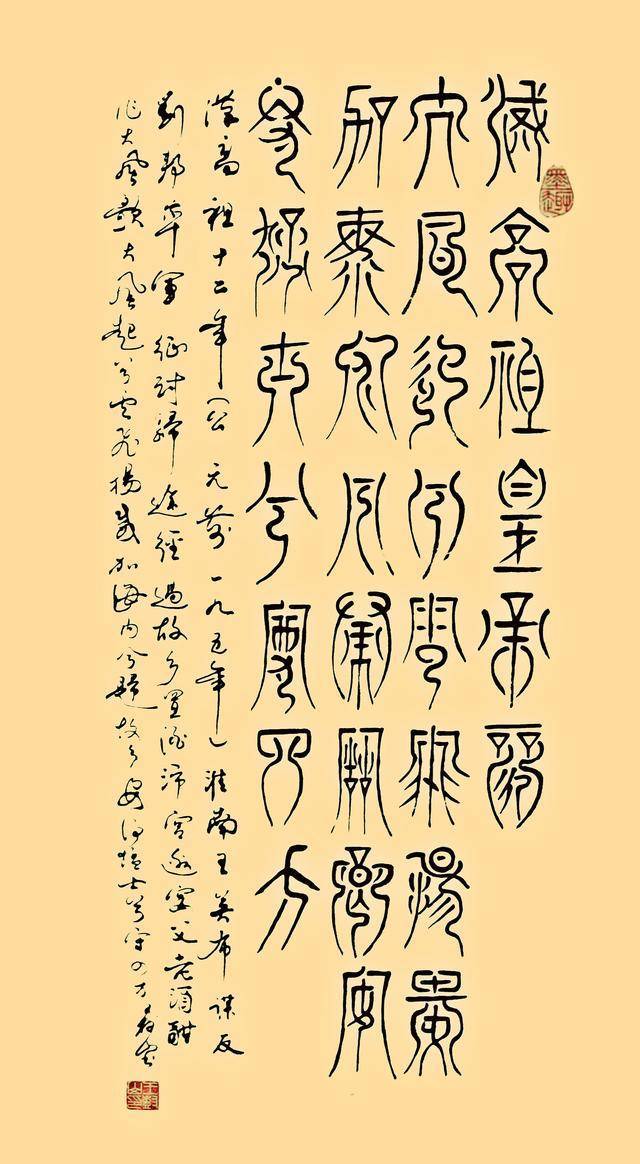 漢高祖皇帝歌
大風起兮雲飛揚威
加海內兮歸故鄉安
得猛士兮守四方
漢高祖十二年（公元前一九五年）淮南王英布謀反
劉邦率軍征討歸途經過故乡置酒沛宮邀宴父老酒酣
作大風歌大風起兮雲飛揚威加海內兮歸故乡安得猛士兮守四方